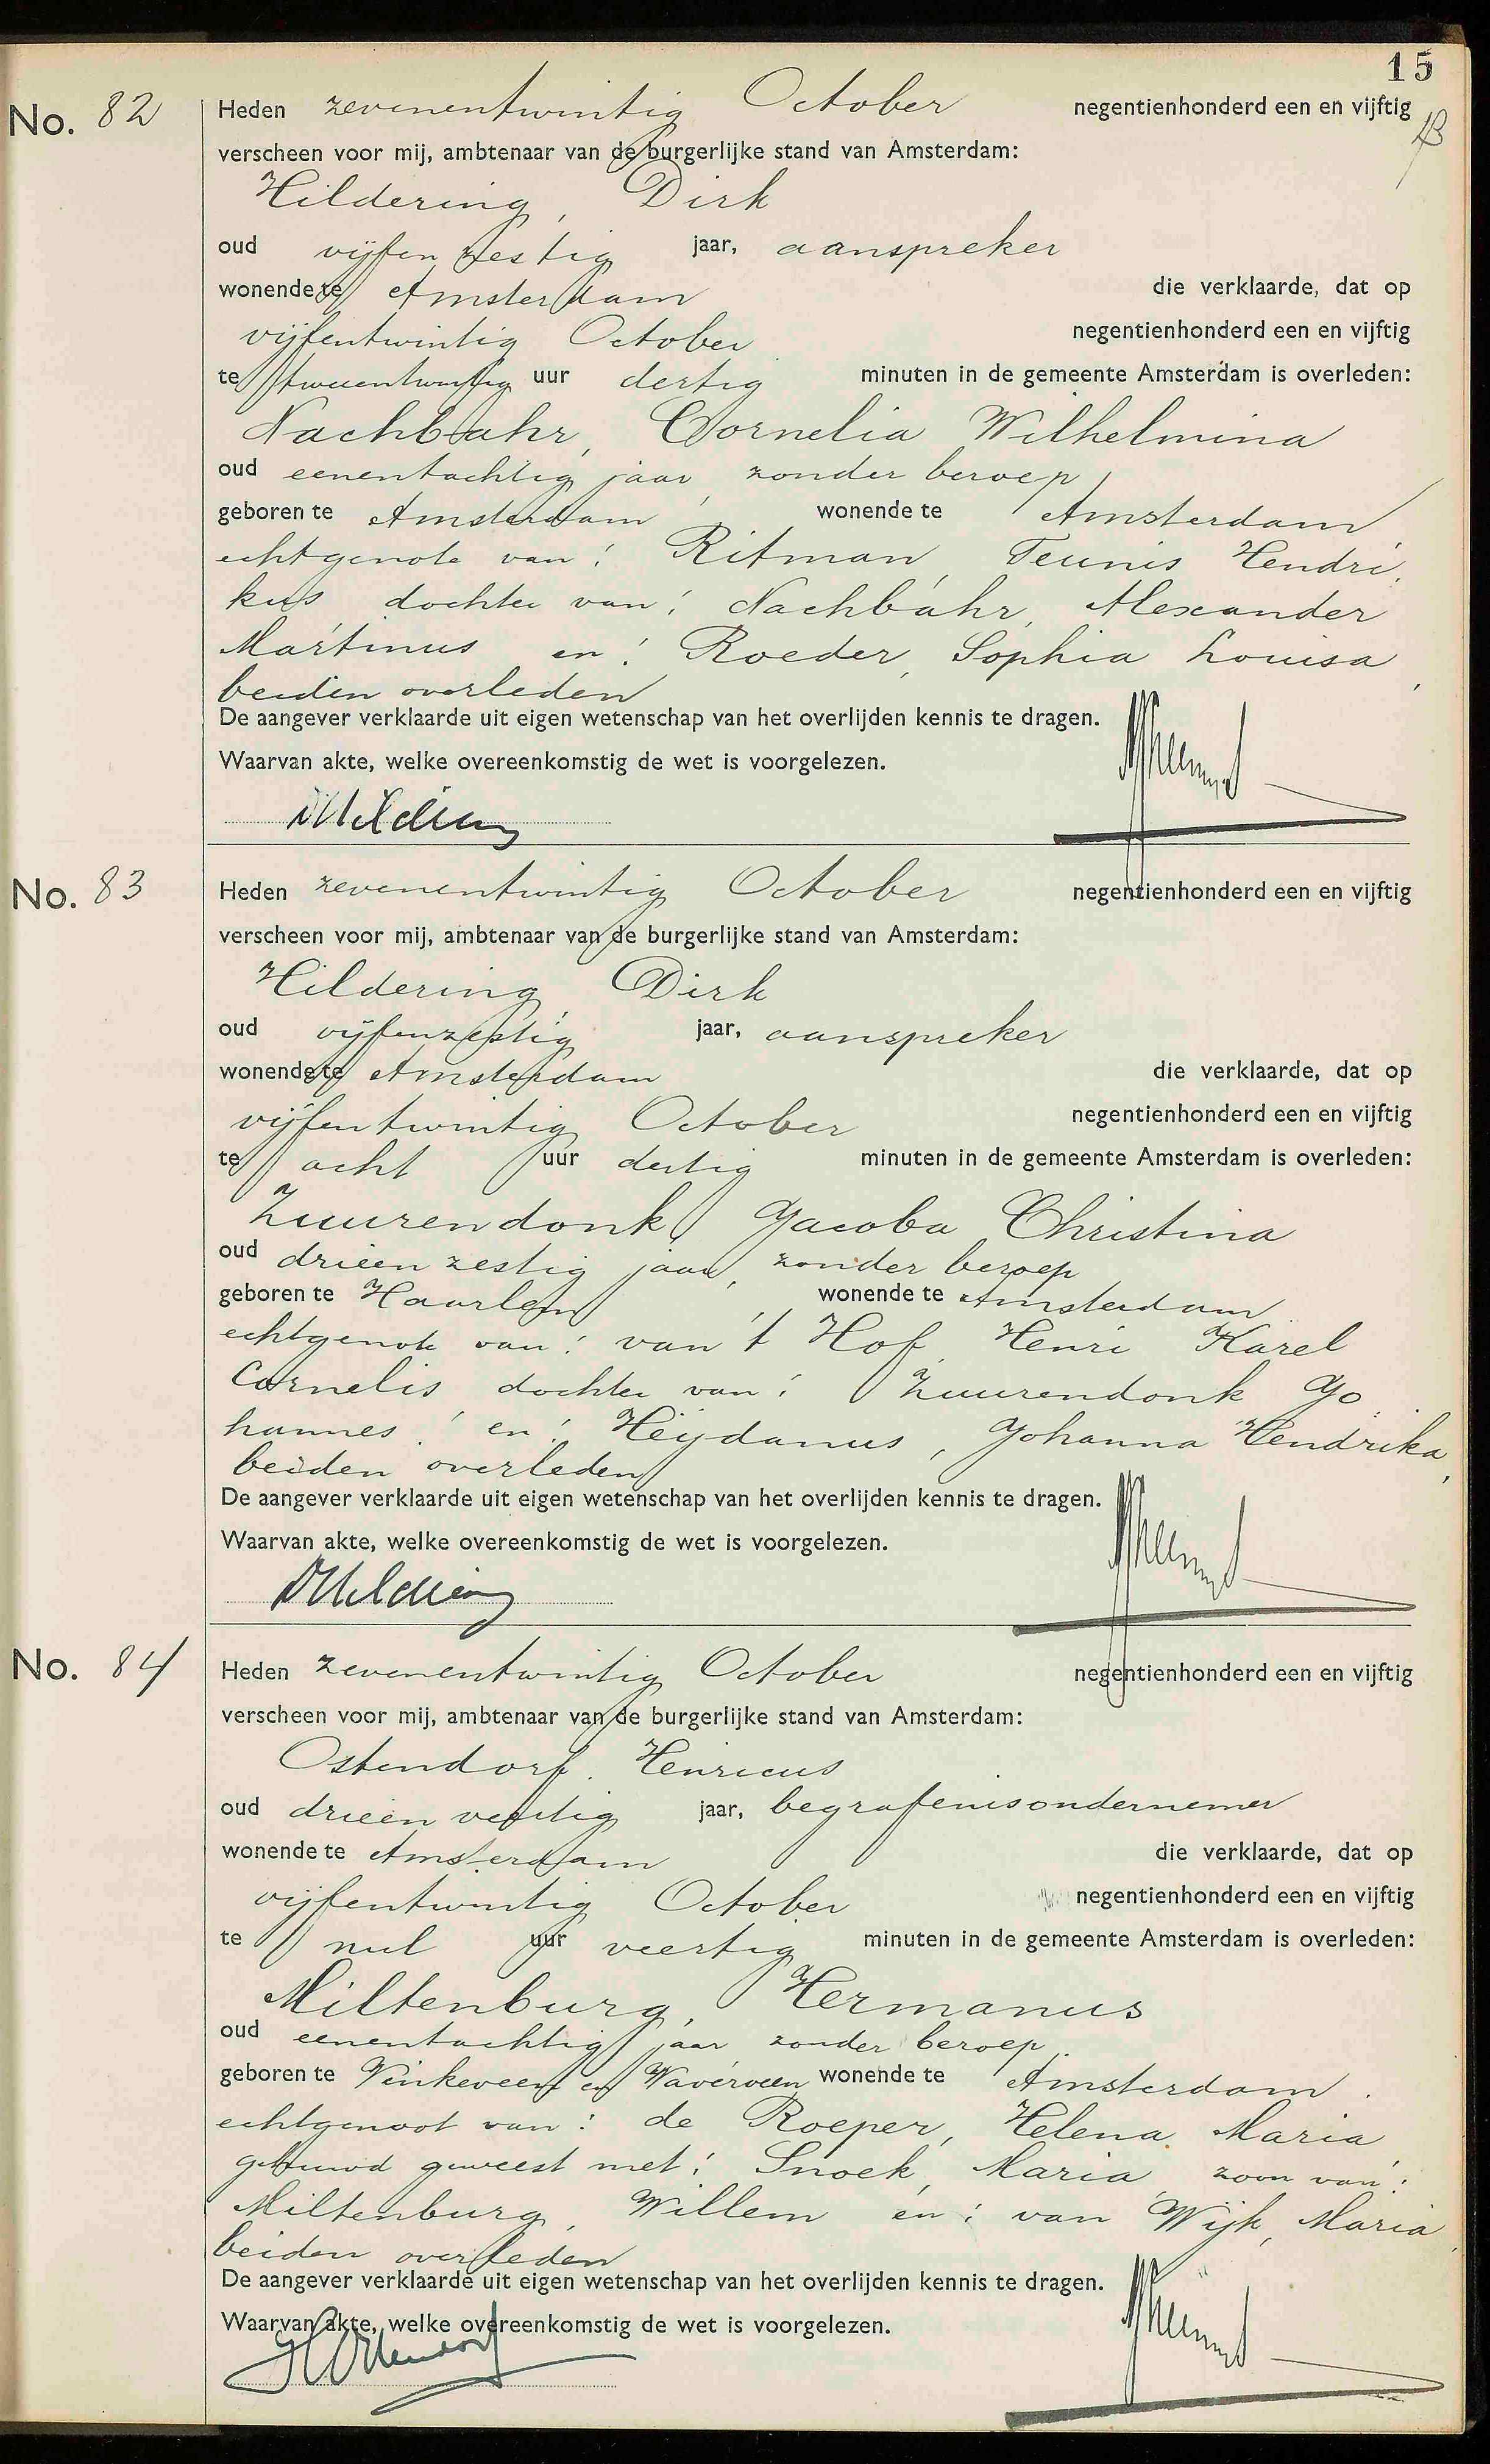 15
No. 82 Heden zevenentwintig October negentienhonderd een en vijftig
verscheen voor mij, ambtenaar van de burgerlijke stand van Amsterdam:
Hildering, Dirk
oud vijfenzestig jaar, aanspreker
wonende te Amsterdam die verklaarde, dat op
vijfentwintig October negentienhonderd een en vijftig
te tweeentwintig uur dertig minuten in de gemeente Amsterdam is overleden:
Nachbahr, Cornelia Wilhelmina
oud eenentachtig jaar, zonder beroep,
geboren te Amsterdam, wonende te Amsterdam
echtgenote van: Ritman, Teunis Hendri-
kus dochter van: Nachbahr, Alexander
Martinus en: Roeder, Sophia Louisa,
beiden overleden
De aangever verklaarde uit eigen wetenschap van het overlijden kennis te dragen.
Waarvan akte, welke overeenkomstig de wet is voorgelezen.
DHildering
No. 83 Heden zevenentwintig October negentienhonderd een en vijftig
verscheen voor mij, ambtenaar van de burgerlijke stand van Amsterdam:
Hildering, Dirk
oud vijfenzestig jaar, aanspreker
wonende te Amsterdam die verklaarde, dat op
vijfentwintig October negentienhonderd een en vijftig
te acht uur dertig minuten in de gemeente Amsterdam is overleden:
Zuurendonk, Jacoba Christina
oud drieenzestig jaar, zonder beroep
geboren te Haarlem, wonende te Amsterdam
echtgenote van: van 't Hof, Henri Karel
Cornelis dochter van: Zuurendonk Jo-
hannes en: Heijdanus, Johanna Hendrika,
beiden overleden
De aangever verklaarde uit eigen wetenschap van het overlijden kennis te dragen.
Waarvan akte, welke overeenkomstig de wet is voorgelezen.
DHildering
No. 84 Heden zevenentwintig October negentienhonderd een en vijftig
verscheen voor mij, ambtenaar van de burgerlijke stand van Amsterdam:
Ostendorf, Henricus
oud drieenveertig jaar, begrafenisondernemer
wonende te Amsterdam die verklaarde, dat op
vijfentwintig October negentienhonderd een en vijftig
te nul uur veertig minuten in de gemeente Amsterdam is overleden:
Miltenburg, Hermanus
oud eenentachtig jaar zonder beroep,
geboren te Vinkeveen en Waverveen wonende te Amsterdam.
echtgenoot van: de Roeper, Helena Maria
gehuwd geweest met: Snoek, Maria, zoon van:
Miltenburg, Willem en: van Wijk, Maria,
beiden overleden
De aangever verklaarde uit eigen wetenschap van het overlijden kennis te dragen.
Waarvan akte, welke overeenkomstig de wet is voorgelezen.
HOstendorf